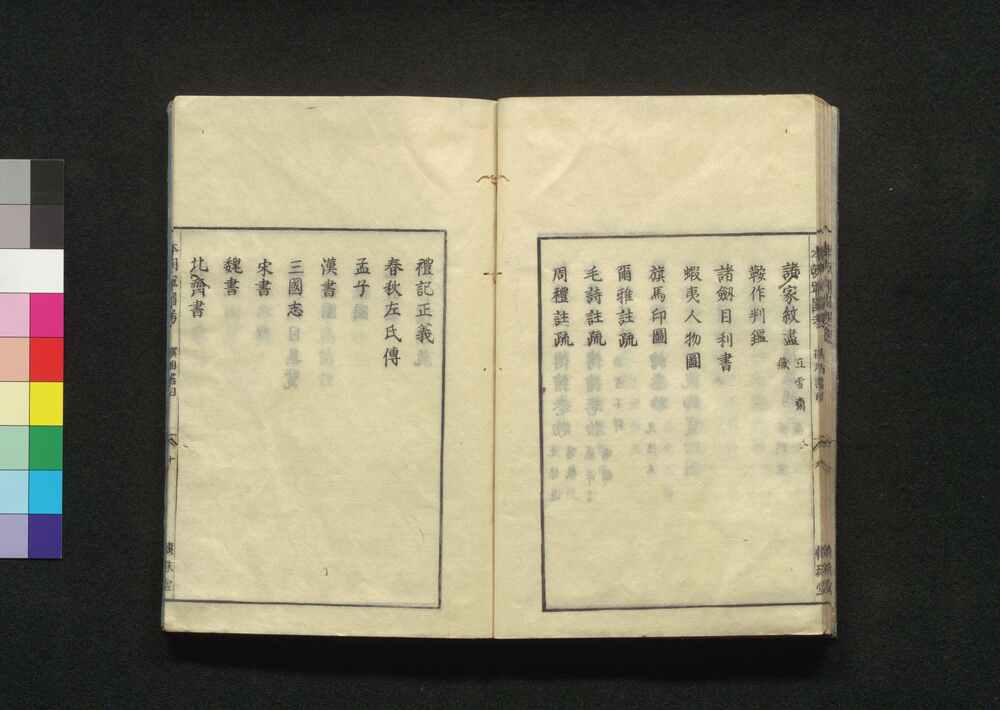 諸家紋盡 豆雪齋藏
鞍作判鑑
諸劔目利書
蝦夷人物圖
旗馬印圖
爾雅註疏
毛詩註疏
周禮註疏
禮記正義
春秋左氏傳
孟子
漢書
三國志
宋書
魏書
北齊書